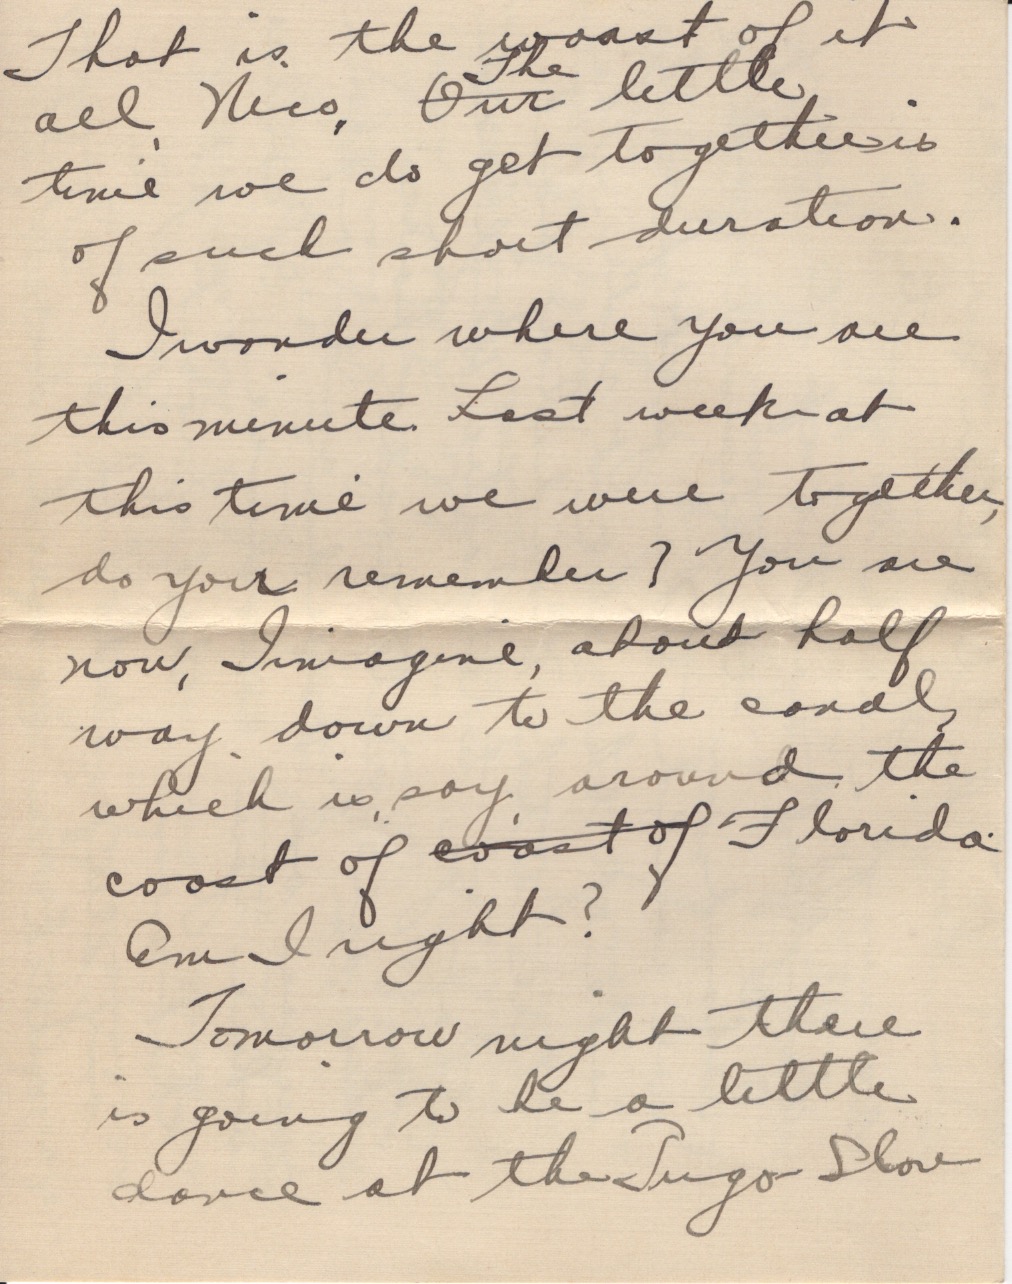 That is the worst of it
all, Nico, The Our little
time we do get together is
of such short duration.
I wonder where you are
this minute. Last week at
this time we were together,
do you remember? You are
now, I imagine, about half
way down to the canal,
which is, say, around the
coast of coast of Florida.
Am I right?
Tomorrow night there
is going to be a little
dance at the Jugo Slov